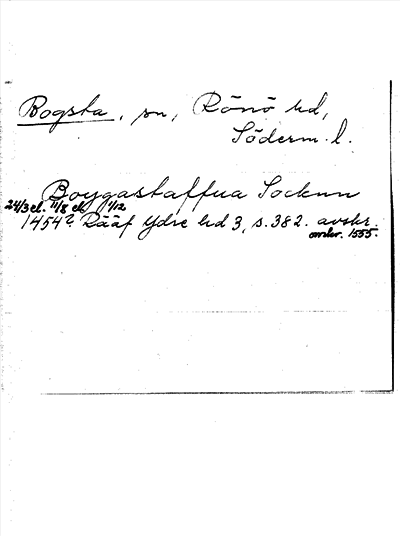 Bogsta, sn, Rönö hd,
Söderm. l.
Boygastaffua Socknn
24/3 el. 11/8 el. 1/12
1454? Rääf Ydre hd 3, s. 382. avskr.
omkr. 1555.